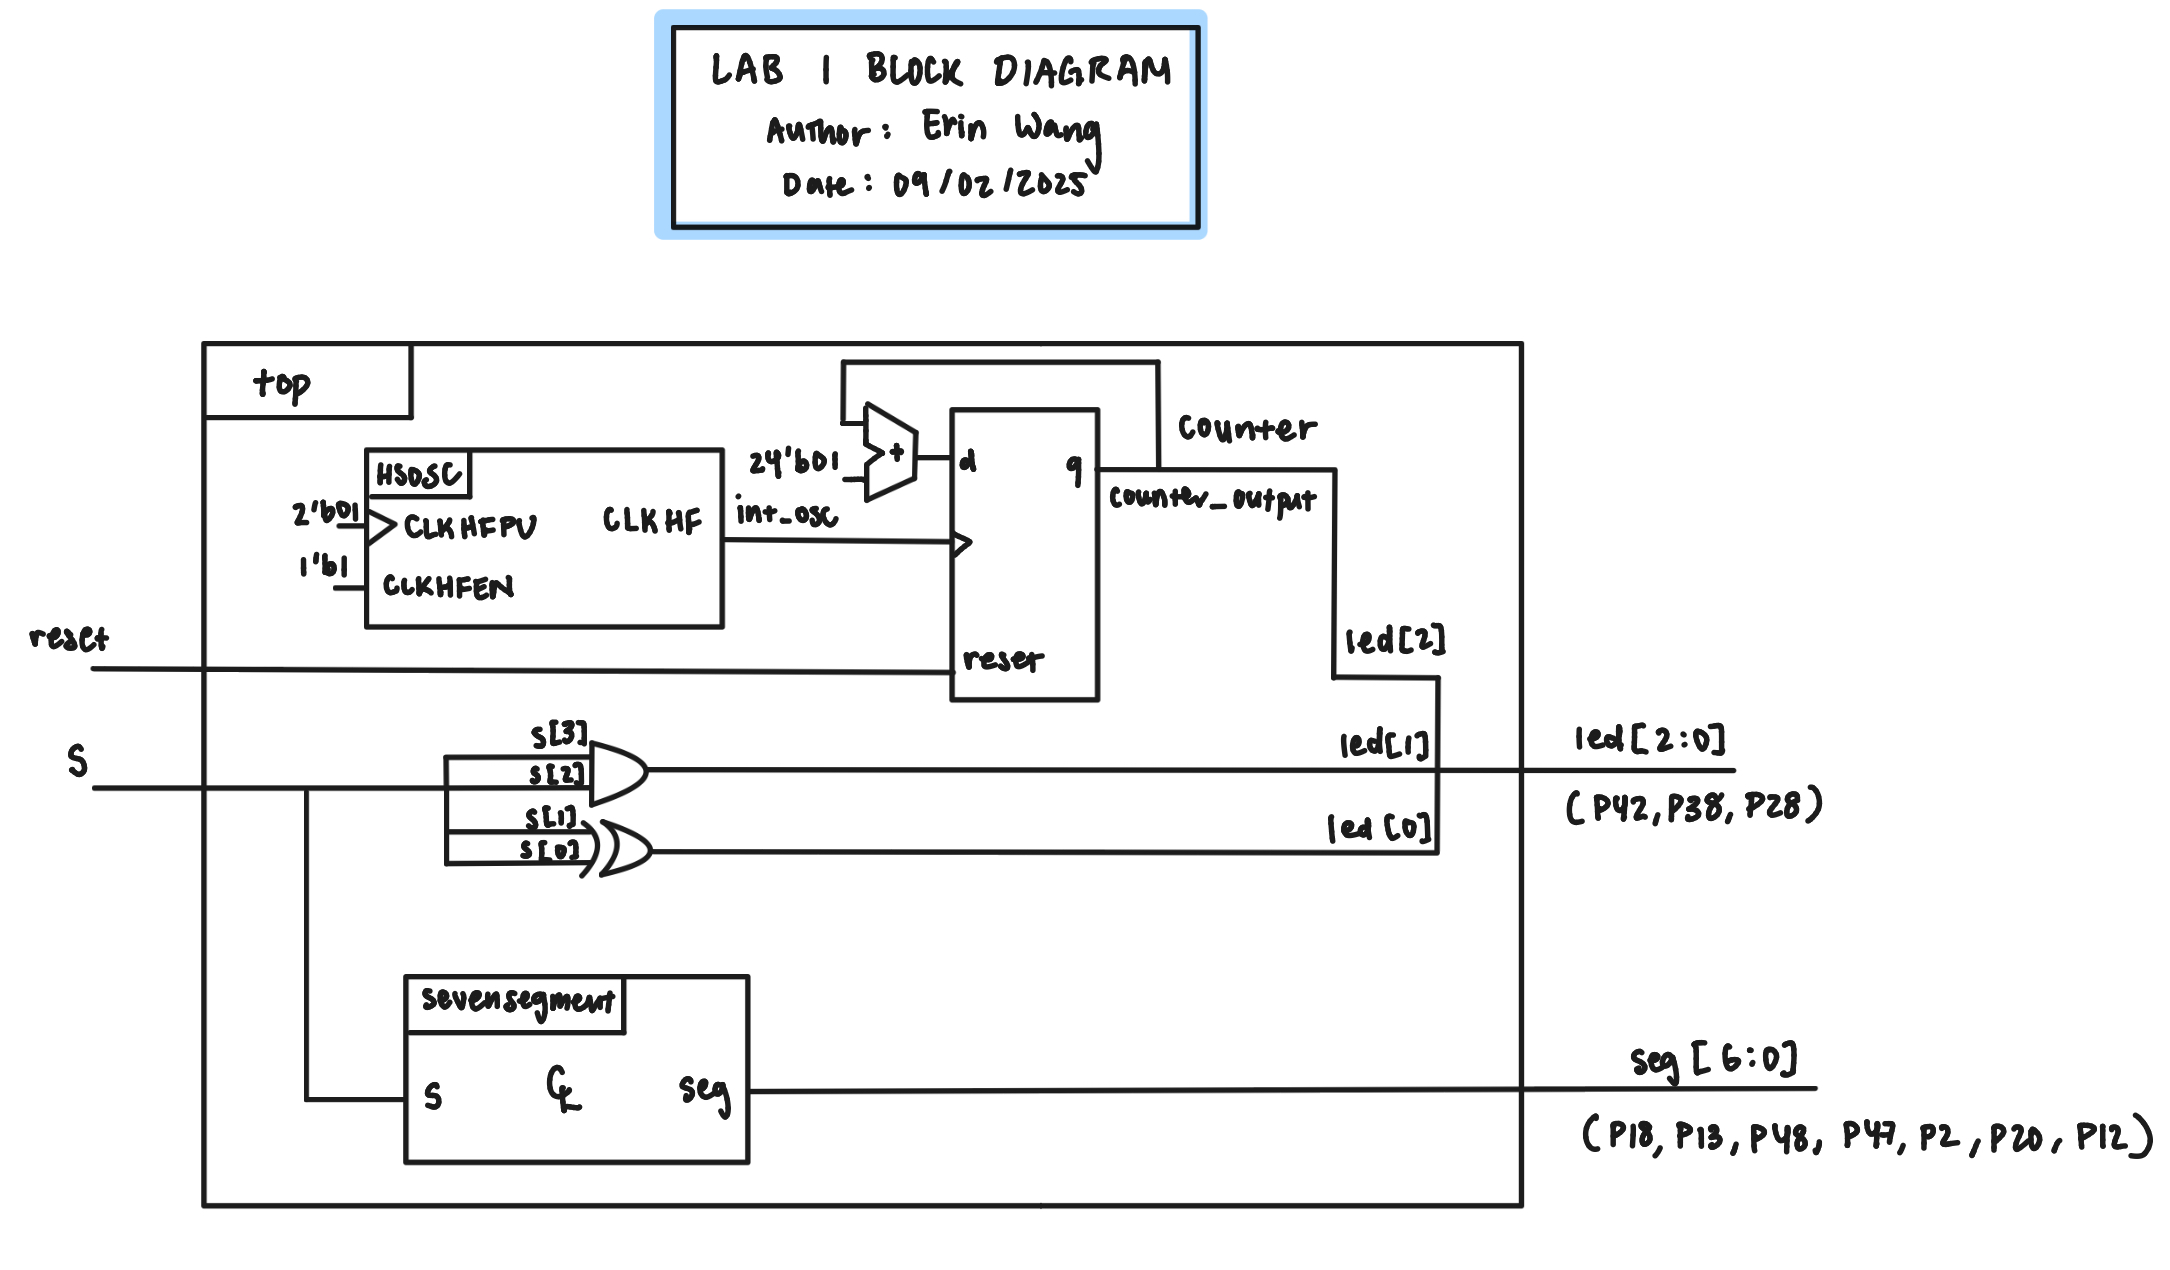 LAB 1 BLOCK DIAGRAM
Author: Erin Wang
Date: 09/02/2025
top
HSOSC
2'b01
CLKHFPU
CLKHF
1'b1
CLKHFEN
int_osc
24'b01
+
d
q
counter
counter_output
reset
reset
led[2]
S
s[3]
s[2]
s[1]
s[0]
led[1]
led[0]
led[2:0]
(P42, P38, P28)
sevensegment
S
CL
seg
seg[6:0]
(P18, P13, P48, P47, P2, P20, P12)